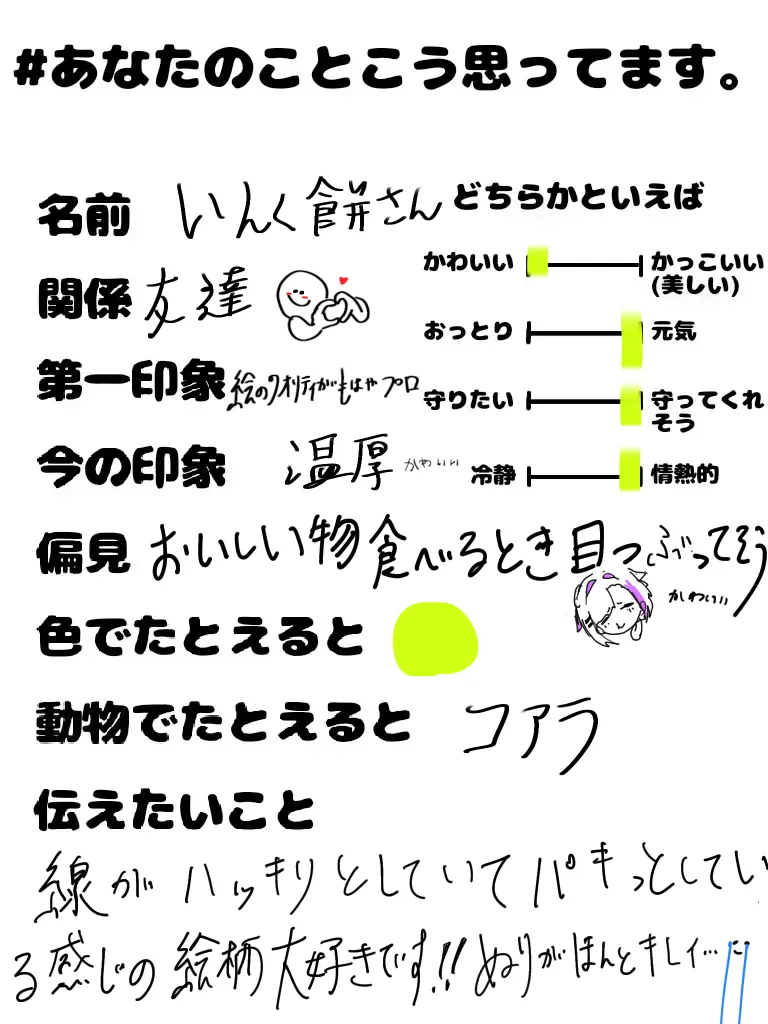 #あなたのことこう思ってます。
名前 いんく餅さん
関係 友達
第一印象 絵のクオリティがもはやプロ
今の印象 温厚 かわいい
どちらかといえば
かわいい かっこいい
(美しい)
おっとり 元気
守りたい 守ってくれ
そう
冷静 情熱的
偏見 おいしい物食べるとき目つぶってそう
かわいい
色でたとえると
動物でたとえると コアラ
伝えたいこと
線がハッキリとしていてパキっとしてい
る感じの絵柄大好きです!!ぬりがほんとキレイ…